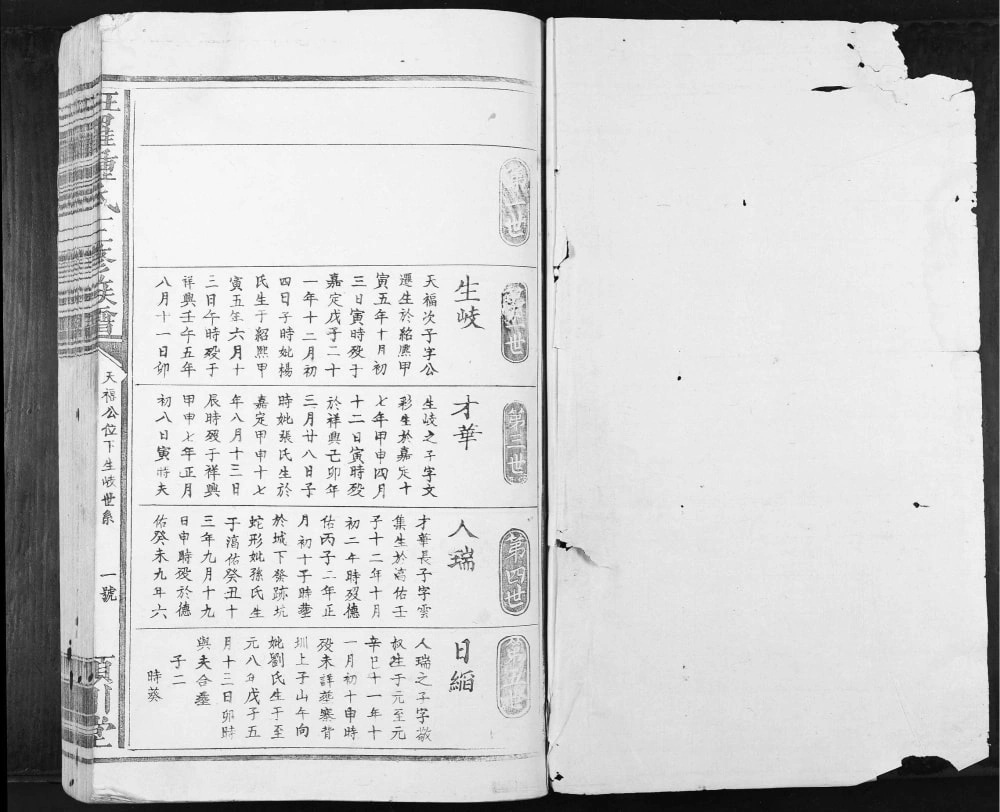 第一世
第二世
生岐
天福次子字公
遷生於紹熙甲
寅五年十月初
三日寅時歿于
嘉定戊子二十
一年十二月初
四日子時妣楊
氏生于紹熙甲
寅五年六月十
三日午時歿于
祥興壬午五年
八月十一日卯
第三世
才華
生岐之子字文
彩生於嘉定十
七年甲申四月
十二日寅時歿
於祥興己卯年
三月廿八日子
時妣張氏生於
嘉定甲申十七
年八月十三日
辰時歿于祥興
甲申七年正月
初八日寅時夫
第四世
人瑞
才華長子字雲
集生於淳佑壬
子十二年十月
初二午時歿德
佑丙子二年正
月初十子時塟
於城下發跡坑
蛇形妣孫氏生
于淳佑癸丑十
三年九月十九
日申時歿於德
佑癸未九年六
第五世
日縚
人瑞之子字敬
奴生于元至元
辛巳十一年十
一月初十申時
歿未詳塟寨背
圳上子山午向
妣劉氏生于至
元八年戊子五
月十三日卯時
與夫合塟
子二
時葵
鍾氏三修族譜
天福公位下生岐世系
一號
頴川堂